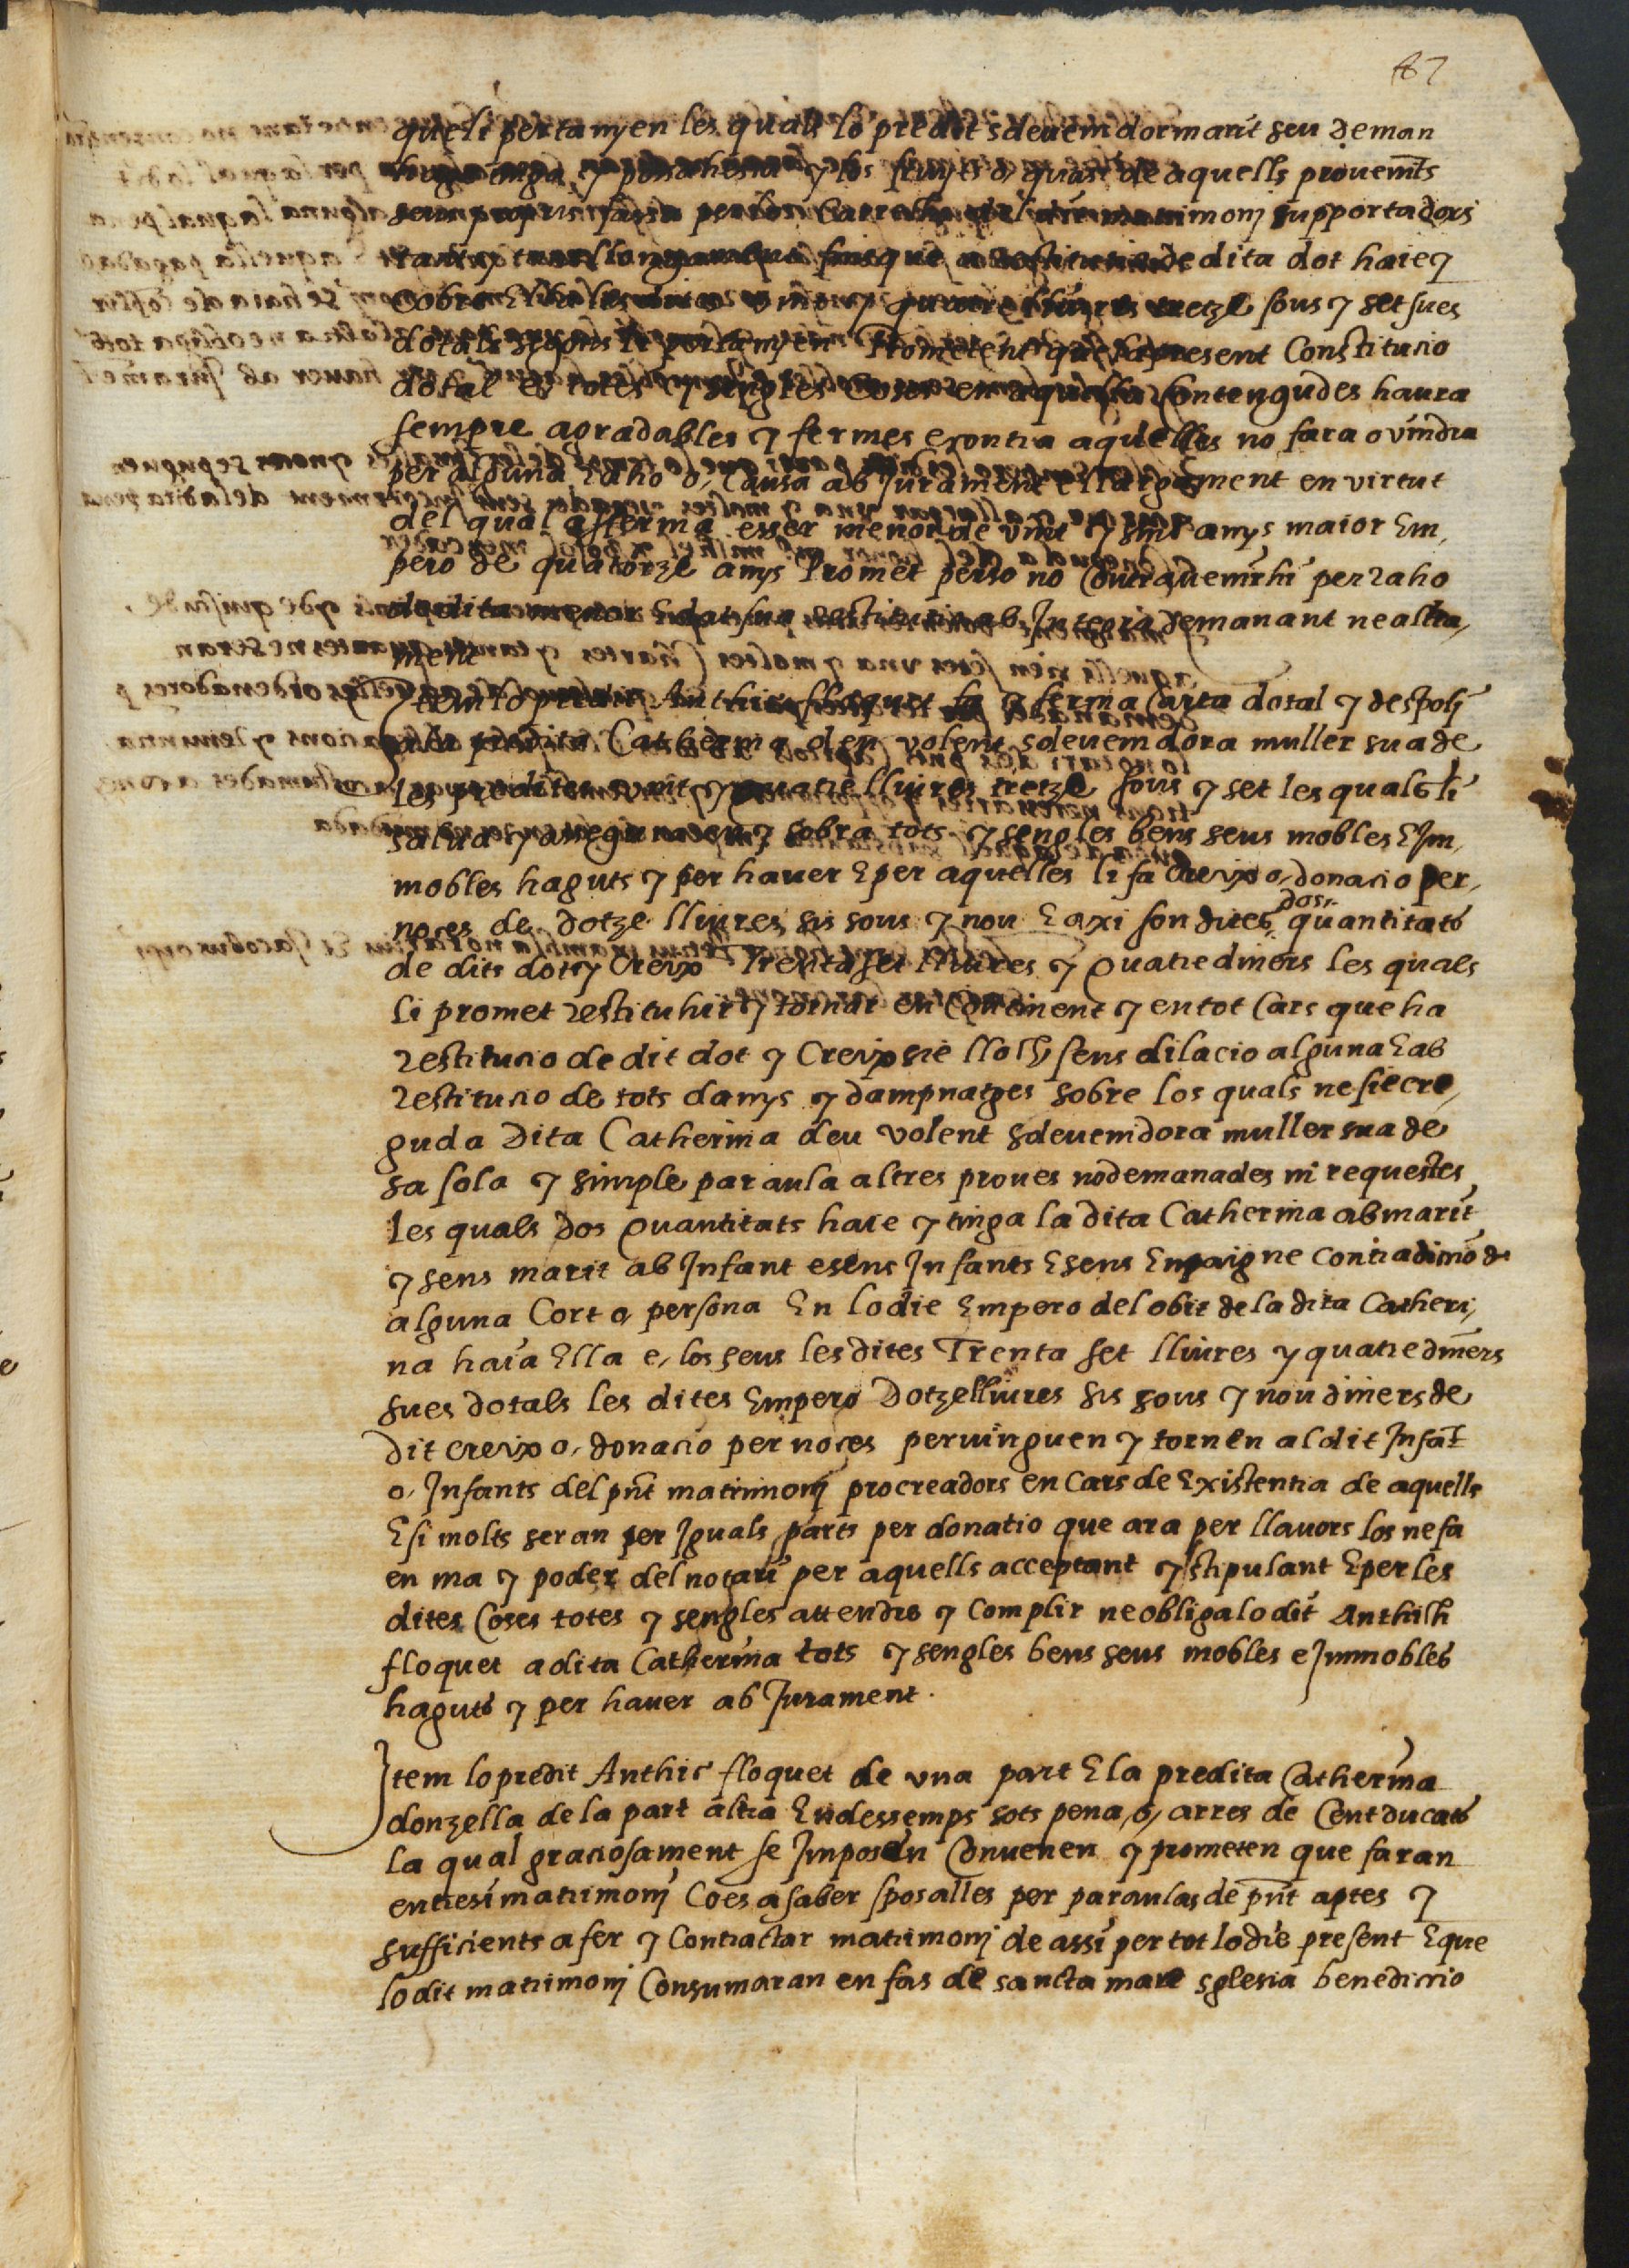 87
que li pertanyen les quals lo predit sdevenidor marit seu deman
haja tinga y possahesca y los fruyts o, quasi de aquells provenints
seus propris fassa per los Carrechs del dit matrimonj supportadors
dita dot haie y
cobre Ella les vint y quatre lliures tretze sous y set sues
dotals segons li pertanyen Prometent que la present Constitucio
dotal e totes y sengles Coses en aquella Contengudes haura
sempre agradables y fermes e contra aquelles no fara o vindra
per alguna Raho o, Causa ab Jurament e llargament en virtut
del qual afferma esser menor de vint y sinc anys maior Em,
pero de quatorze anys Promet perso no Contravenirhi per raho
de dita menor Edat sua restitutio ab Integra demanant ne altra,
ment
Item lo predit Anthic floquet fa y ferma Carta dotal y de spolj
a la predita Catherina deu volent sdevenidora muller sua de
les predites vint y quatre lliures tretze sous y set les quals li
salva y assegura en y sobra tots y sengles bens seus mobles E Im,
mobles haguts y per haver E per aquelles li fa Creix o, donacio per,
noces de dotze lliures sis sous y nou E axi son dites dos quantitats
de dits dot y Creix Trenta set lliures y Quatre diners les quals
li promet restituhir y tornar en Continent y en tot Cars que ha
restitucio de dit dot y Creix sie lloch sens dilacio alguna E ab
restitucio de tots danys y dampnatges sobre los quals ne sie cre,
guda Dita Catherina deu volent sdevenidora muller sua de
sa sola y simple paraula altres proves no demanades ni requestes
les quals dos Quantitats haie y tinga la dita Catherina ab marit
y sens marit ab Infant e sens Infants E sens Enpaig ne Contradictio de
alguna Cort o, persona En lo die Empero del obit de la dita Catheri,
na haia Ella e, los seus les dites Trenta set lliures y quatre diners
sues dotals les dites Empero Dotze lliures sis sous y nou diners de
dit creix o, donacio per noces pervinguen y tornen al dit Infāt
o, Infants del pñt matrimonj procreadors en Cars de Existentia de aquells
E si molts seran per Iguals parts per donatio que ara per llavors los ne fa
en ma y poder del notari per aquells acceptant y stipulant E per les
dites Coses totes y sengles attendre y Complir ne obliga lo dit Anthich
floquet a dita Catherina tots y sengles bens seus mobles e Immobles
haguts y per haver ab Jurament.
Item lo predit Anthic floquet de una part E la predita Catherina
donzella de la part altra Endessemps sots pena, o, arres de Cent ducats
La qual graciosament se Imposen Convenen y prometen que faran
entre si matrimonj Co es a saber sposalles per paraulas de pñt aptes y
sufficients a fer y Contractar matrimonj de assi per tot lo die present E que
lo dit matrimonj Consumaran en fas de sancta mare sglesia benediccio